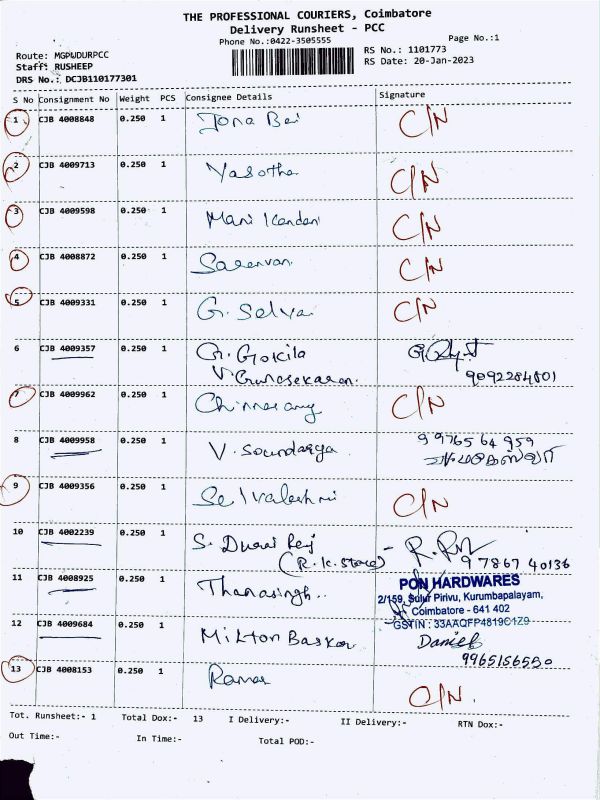 THE PROFESSIONAL COURIERS, Coimbatore
Delivery Runsheet - PCC
Phone No.:0422-3505555
Page No.:1
Route: MGPWDURPCC
RS No.: 1101773
Staff: RUSHEEP
RS Date: 20-Jan-2023
DRS No.: DCJB110177301
S No Consignment No Weight PCS Consignee Details Signature
1 CJB 4008848 0.250 1 Jona Bai C/N
2 CJB 4009713 0.250 1 Yasotha C/N
3 CJB 4009598 0.250 1 Mani Kandan C/N
4 CJB 4008872 0.250 1 Saravanan C/N
5 CJB 4009331 0.250 1 G. Selvai C/N
6 CJB 4009357 0.250 1 G. Gokila
V. Gunasekaran. 9092284801
7 CJB 4009962 0.250 1 C/N
8 CJB 4009958 0.250 1 V. Soundarya 9976564959
9 CJB 4009356 0.250 1 Selvalakshmi C/N
10 CJB 4002239 0.250 1 S. Durai Raj
(R.K. Store) 97867 40136
11 CJB 4008925 0.250 1 Thanasingh..
PON HARDWARES
2/159, Sulur Pirivu, Kurumbapalayam,
Coimbatore - 641 402
GSTIN : 33AAQFP4819C1Z9
12 CJB 4009684 0.250 1 Milton Baskar Daniel
9965156550
13 CJB 4008153 0.250 1 Raman C/N
Tot. Runsheet:- 1 Total Dox:- 13 I Delivery:- II Delivery:- RTN Dox:-
Out Time:- In Time:- Total POD:-